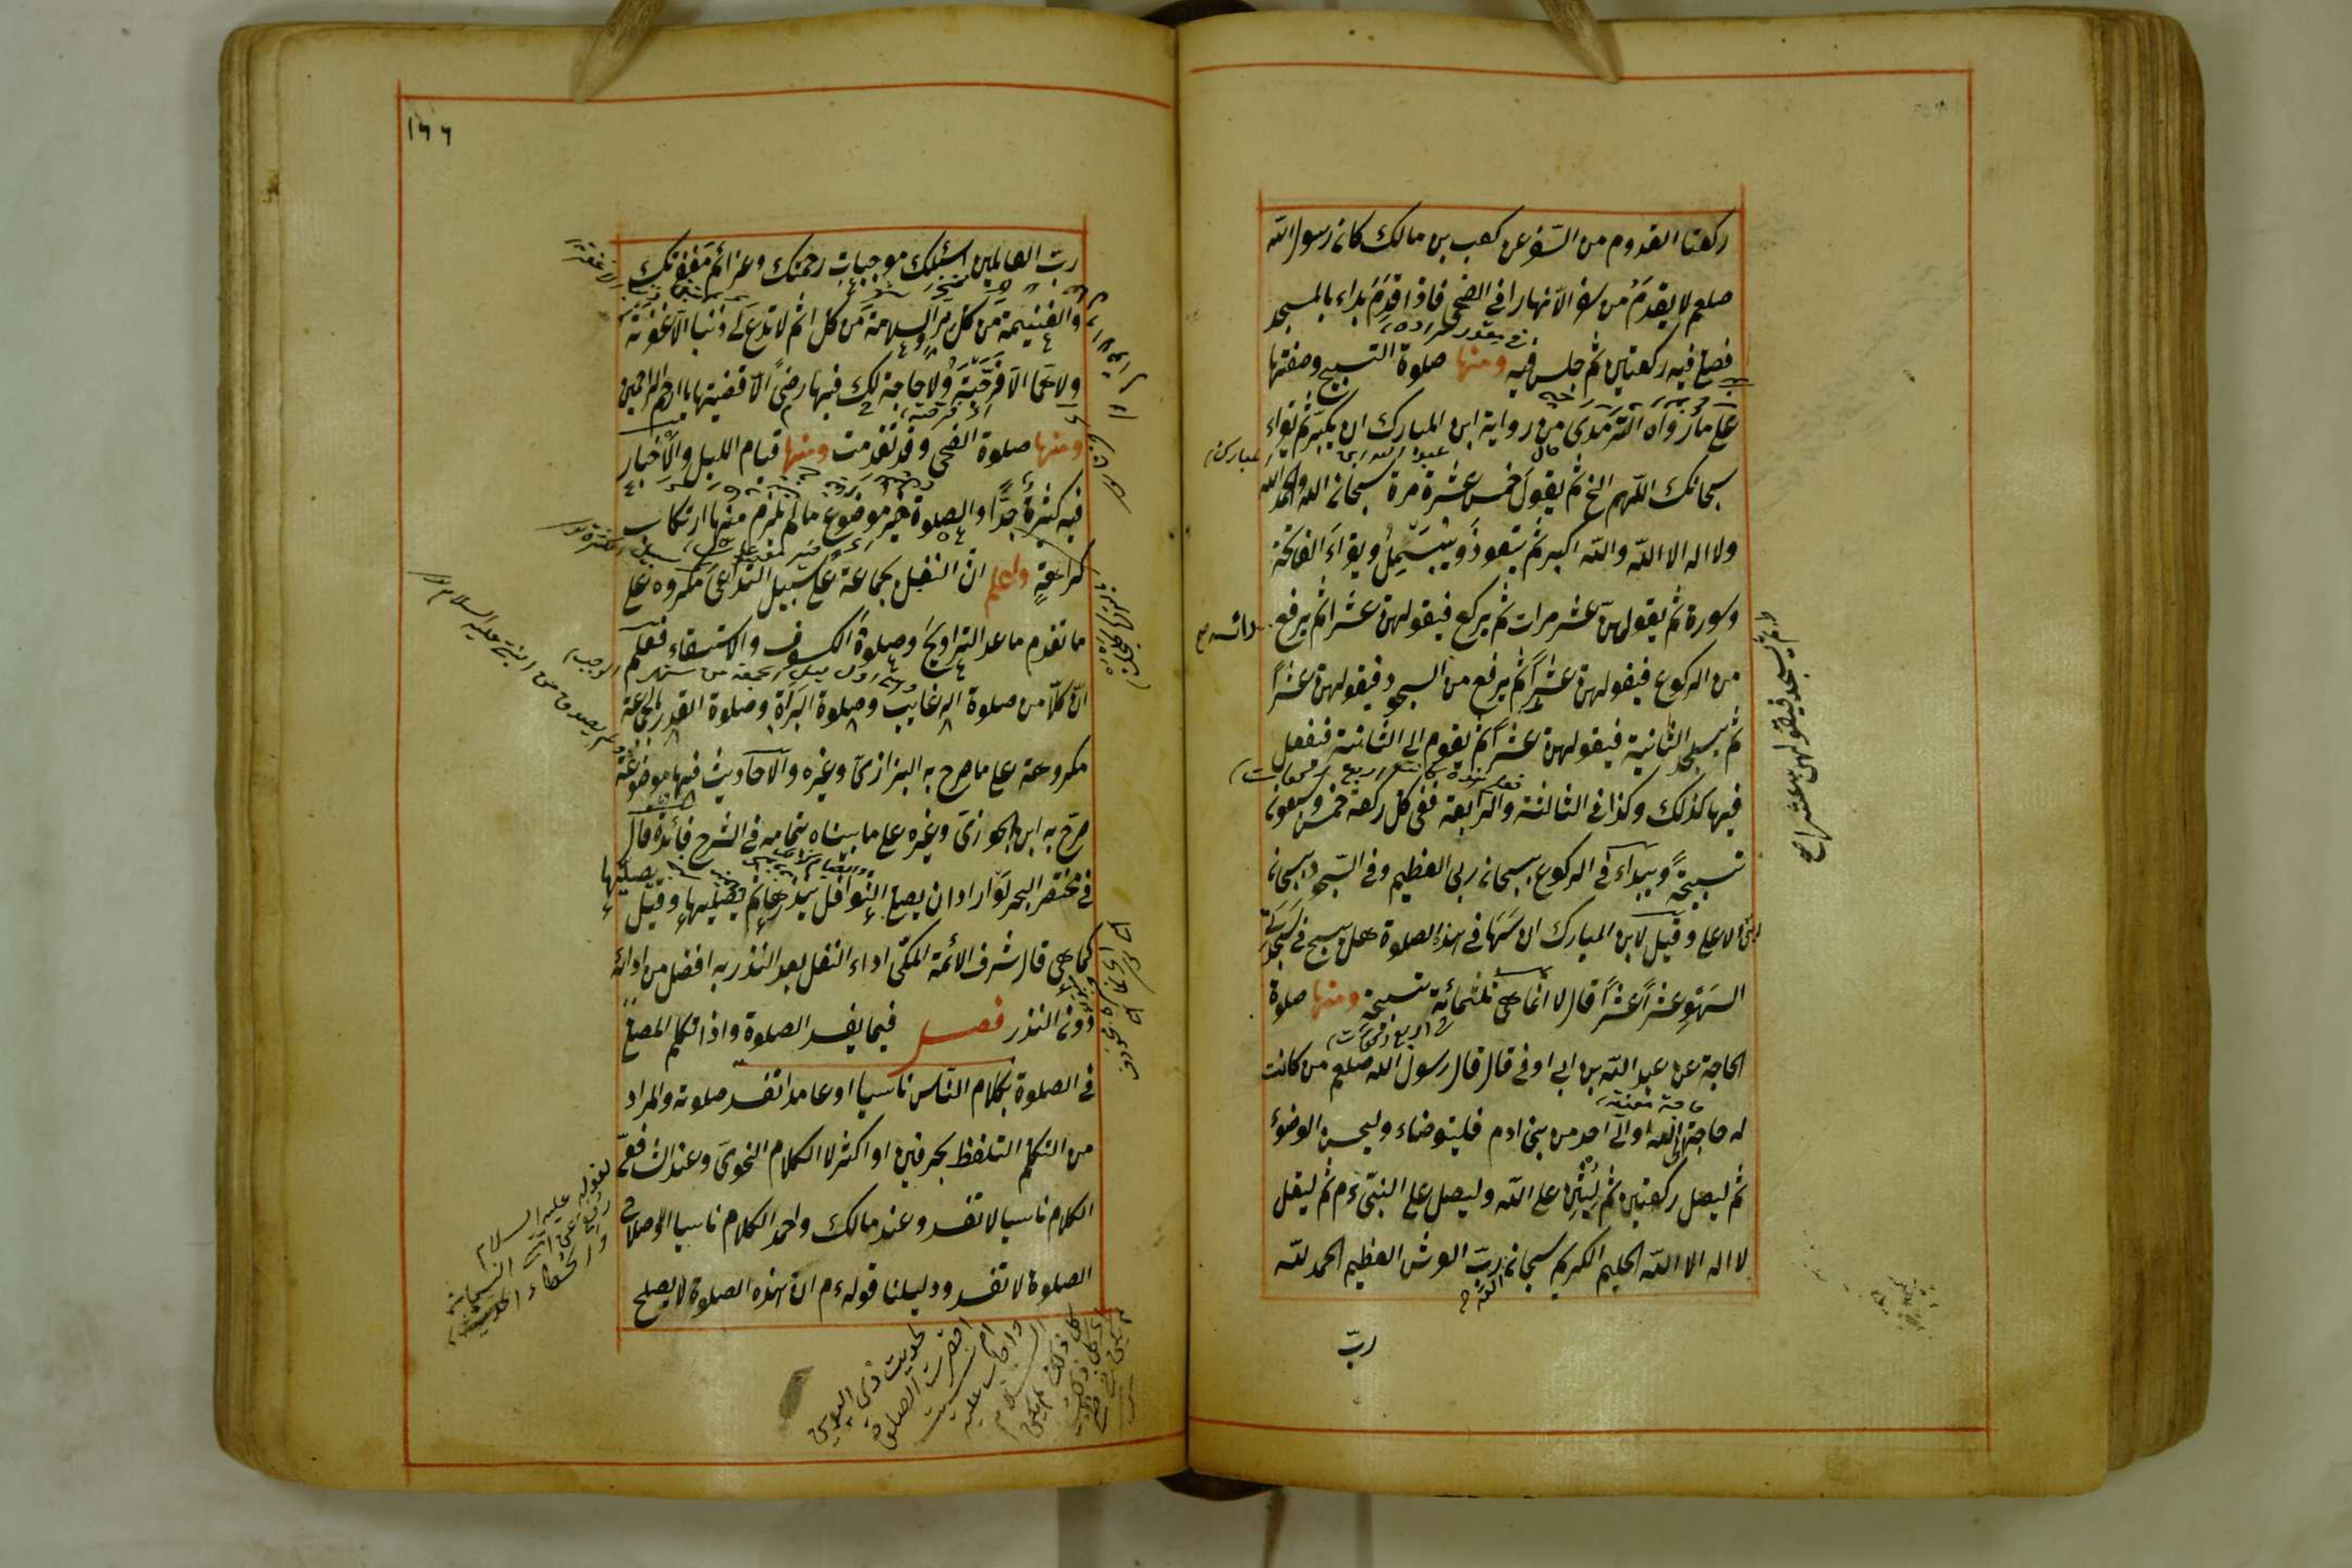 ركعتا القدوم من السفر عن كعب بن مالك كان رسول الله
صلعم لا يقدم من سفر الا نهارا في الضحى فاذا قدم بداء بالمسجد
فصلى فيه ركعتين ثم جلس فيه ومنها صلوة التسبيح وصفتها
على ما رواه الترمذى من رواية ابن المبارك ان يكبر ثم يقراء
سبحانك اللهم الخ ثم يقول خمس عشرة مرة سبحان الله والحمد لله
ولا اله الا الله والله اكبر ثم يتعوذ ويبسمل ويقراء الفاتحة
وسورة ثم يقولهن عشر مرات ثم يركع فيقولهن عشرا ثم يرفع رائسه
من الركوع فيقولهن عشرا ثم يرفع من السجود فيقولهن عشرا
ثم يسجد فيقولهن عشرا صح
ثم يسجد الثانية فيقولهن عشرا ثم يقوم الى الثانية فيفعل
فيها كذلك وكذا في الثالثة والرابعة ففي كل ركعة خمس وسبعون
تسبيحة ويبداء في الركوع بسبحان ربى العظيم وفي السجود بسبحان
ربى الاعلى وقيل لابن المبارك ان سها في هذه الصلوة هل يسبح في سجدتى
السهو عشرا عشرا قال لا انما هى ثلثمائة تسبيحة ومنها صلوة
الحاجة عن عبد الله بن ابى اوفى قال قال رسول الله صلعم من كانت
له حاجة الى الله او الى احد من بنى ادم فليتوضاء وليحسن الوضوء
ثم ليصل ركعتين ثم ليثن على الله وليصل على النبى ءم ثم ليقل
لا اله الا الله الحليم الكريم سبحان الله رب العرش العظيم الحمد لله
رب
١٦٦
رب العالمين اسئلك موجبات رحمتك وعزائم مغفرتك
والغنيمة من كل بر والسلامة من كل اثم لا تدع لى ذنبا الا غفرته
ولا هما الا فرجته ولا حاجة لك فيها رضى الا قضيتها يا ارحم الراحمين
ومنها صلوة الضحى وقد تقدمت ومنها قيام الليل والاخبار
فيه كثيرة جدا والصلوة خير موضوع ما لم يلزم منها ارتكاب
كراهة واعلم ان النفل بجماعة على سبيل التداعى مكروه على
ما تقدم ما عدا التراويح وصلوة الكسوف والاستسقاء فعلم
ان كلا من صلوة الرغايب وصلوة البراة وصلوة القدر بالجماعة
مكروهة على ما صرح به البزازى وغيره والاحاديث فيها موضوعة
صرح به ابن الجوزى وغيره على ما بيناه بتمامه في الشرح فائدة قال
في مختصر البحر لو اراد ان يصلى النوافل ينذرها ثم يصليها وقيل يصليها
كما هى قال شرف الائمة المكى اداء النفل بعد النذر به افضل من ادائه
دون النذر فصل فيما يفسد الصلوة واذا تكلم المصلى
في الصلوة بكلام الناس ناسيا او عامدا تفسد صلوته والمراد
من التكلم التلفظ بحرفين او اكثر لا الكلام النحوى وعند الشافعى
الكلام ناسيا لا تفسد وعند مالك واحمد الكلام ناسيا لاصلاح
الصلوة لا تفسد ودليلنا قوله ءم ان هذه الصلوة لا يصلح
لقوله عليه السلام
رفع عن امتى النسيان
والخطاء الحديث
لحديث ذى اليدين
اقصرت الصلوة
ام نسيت